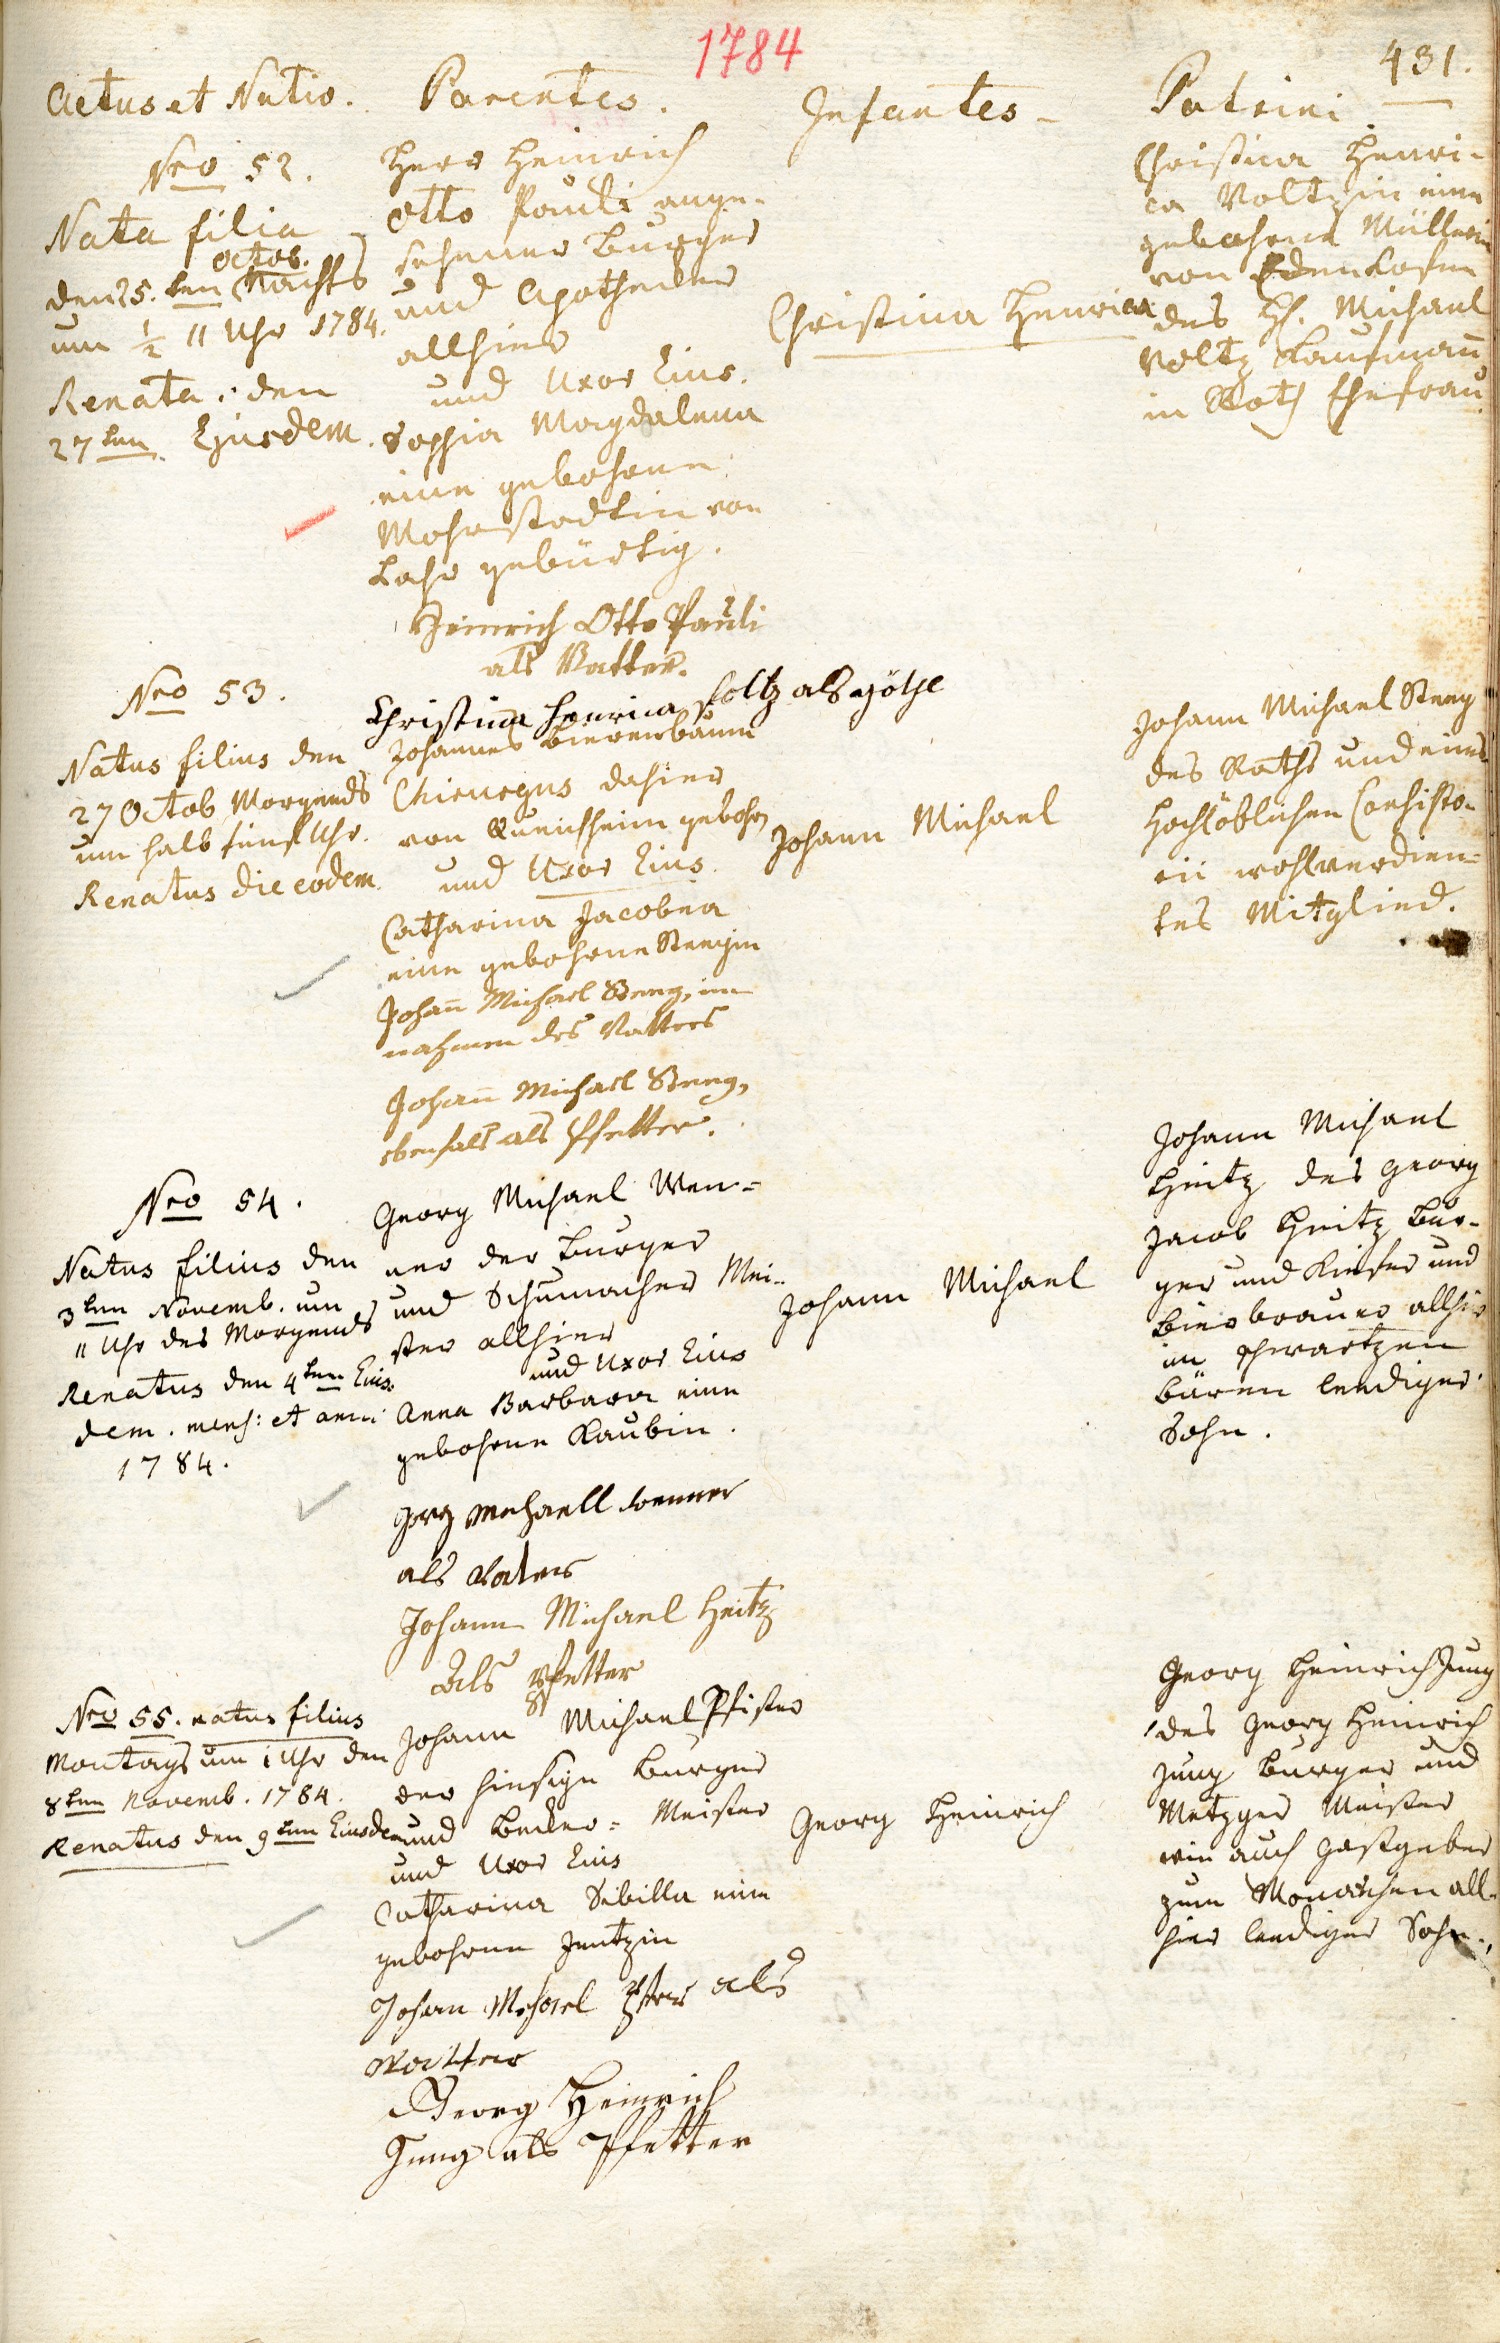 1784
431.
Actus et Natio.
Parentes.
Infantes
Patrini
Nro 52.
Nata filia
octob.
den 25.ten Nachts
um ½ 11 Uhr 1784.
Renata: den
27ten Ejusdem.
Herr Heinrich
Otto Pauli ange-
sehener Burger
und Apothecker
allhier
und Uxor Eius.
Sophia Magdalena
eine gebohrne
Mohrstadtin von
Lahr gebürtig.
Heinrich Otto Pauli
als Vatter.
Christina Henrica Foltz als göthe
Christina Henrica
Christina Henri-
ca Voltzin eine
gebohrne Müllerin
von Edenkofen
des H. Michael
Voltz Kaufmañ
in Roth Ehefrau
Nro 53.
Natus filius den
27 Octob Morgends
um halb fünf Uhr.
Renatus die eodem.
Johannes Bierenbaum
Chirurgus dahier
von Queichheim gebohrn
und Uxor Eius.
Catharina Jacobea
eine gebohrne Stengin
Johañ Michael Steng, im
nahmen des Vatters
Johañ Michael Steng,
ebenfals als Pfetter.
Johann Michael
Johann Michael Steng
des Raths und eines
Hochlöblichen Consisto-
rii wohlverdien-
tes Mitglied.
Nro 54.
Natus filius den
3ten Novemb. um
11 Uhr des Morgends
Renatus den 4ten Eius-
dem. mens: et anni
1784.
Georg Michael Wen-
ner der Burger
und Schumacher Mei-
ster allhier
und Uxor Eius
Anna Barbara eine
gebohrne Raubin.
Gorg Mechaell Wenner
als Vaters
Johann Michael Heitz
Als Pfetter
Johann Michael
Johann Michael
Heitz des Georg
Jacob Heitz Bur-
ger und Kiefer und
Bierbrauer allhier
im schwartzen
Bären leediger
Sohn.
Nro 55. natus filius
Montags um 1 Uhr den
8ten Novemb. 1784.
Renatus den 9ten Eiusdem
Johann Michael Pfister
der hiesige Burger
und Becker-Meister
und Uxor Eius
Catharina Sibilla eine
gebohrne Jentzin
Johan Michael Pfister als
Vatter
Georg Heinrich
Jung als Pfetter
Georg Heinrich
Georg Heinrich Jung
des Georg Heinrich
Jung Burger und
Metzger Meister
wie auch Gastgeber
zum Monarchen all-
hier leediger Sohn.